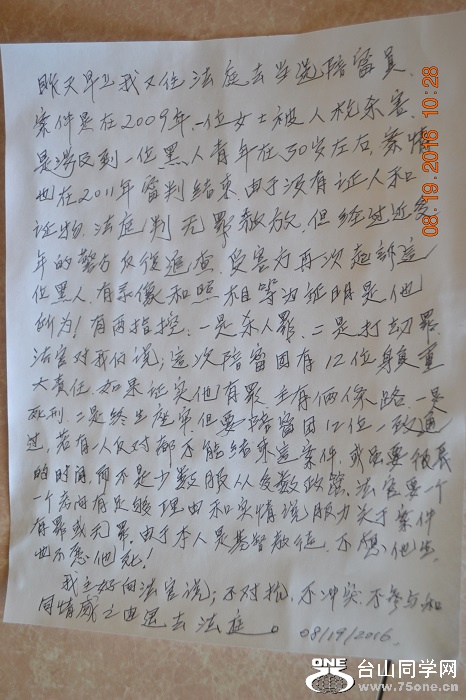 昨天早上我又往法庭去当选陪审员、
案件是在2009年、一位女士被人枪杀害
是涉及到一位黑人青年在30岁左右、案情
也在2011年审判结束、由于没有证人和
证物、法庭判无罪释放、但经过近多
年的警方反复追查、受害方再次起诉这
位黑人、有录像和照相等为证明是他
所为！有两指控、一是杀人罪、二是打劫罪、
法官对我们说；这次陪审团有12位身负重
大责任、如果证实他有罪、主有俩条路、一是
死刑、二是终生座牢、但要陪审团12位一致通
过、若有一人反对都不能结束这案件、或至要很长
的时间、而不是少数服从多数政策、法官要一个
一个名问有足够理由和实情说服力关于案件
有罪或无罪、由于本人是基督教徒、不想他生
也不愿他死！
我主好向法官说；不对抗、不冲突、不参与和
同情感之由退去法庭。 08/19/2016.
08-19-2016 10:28
ONE 台山同学网
www.75one.cn